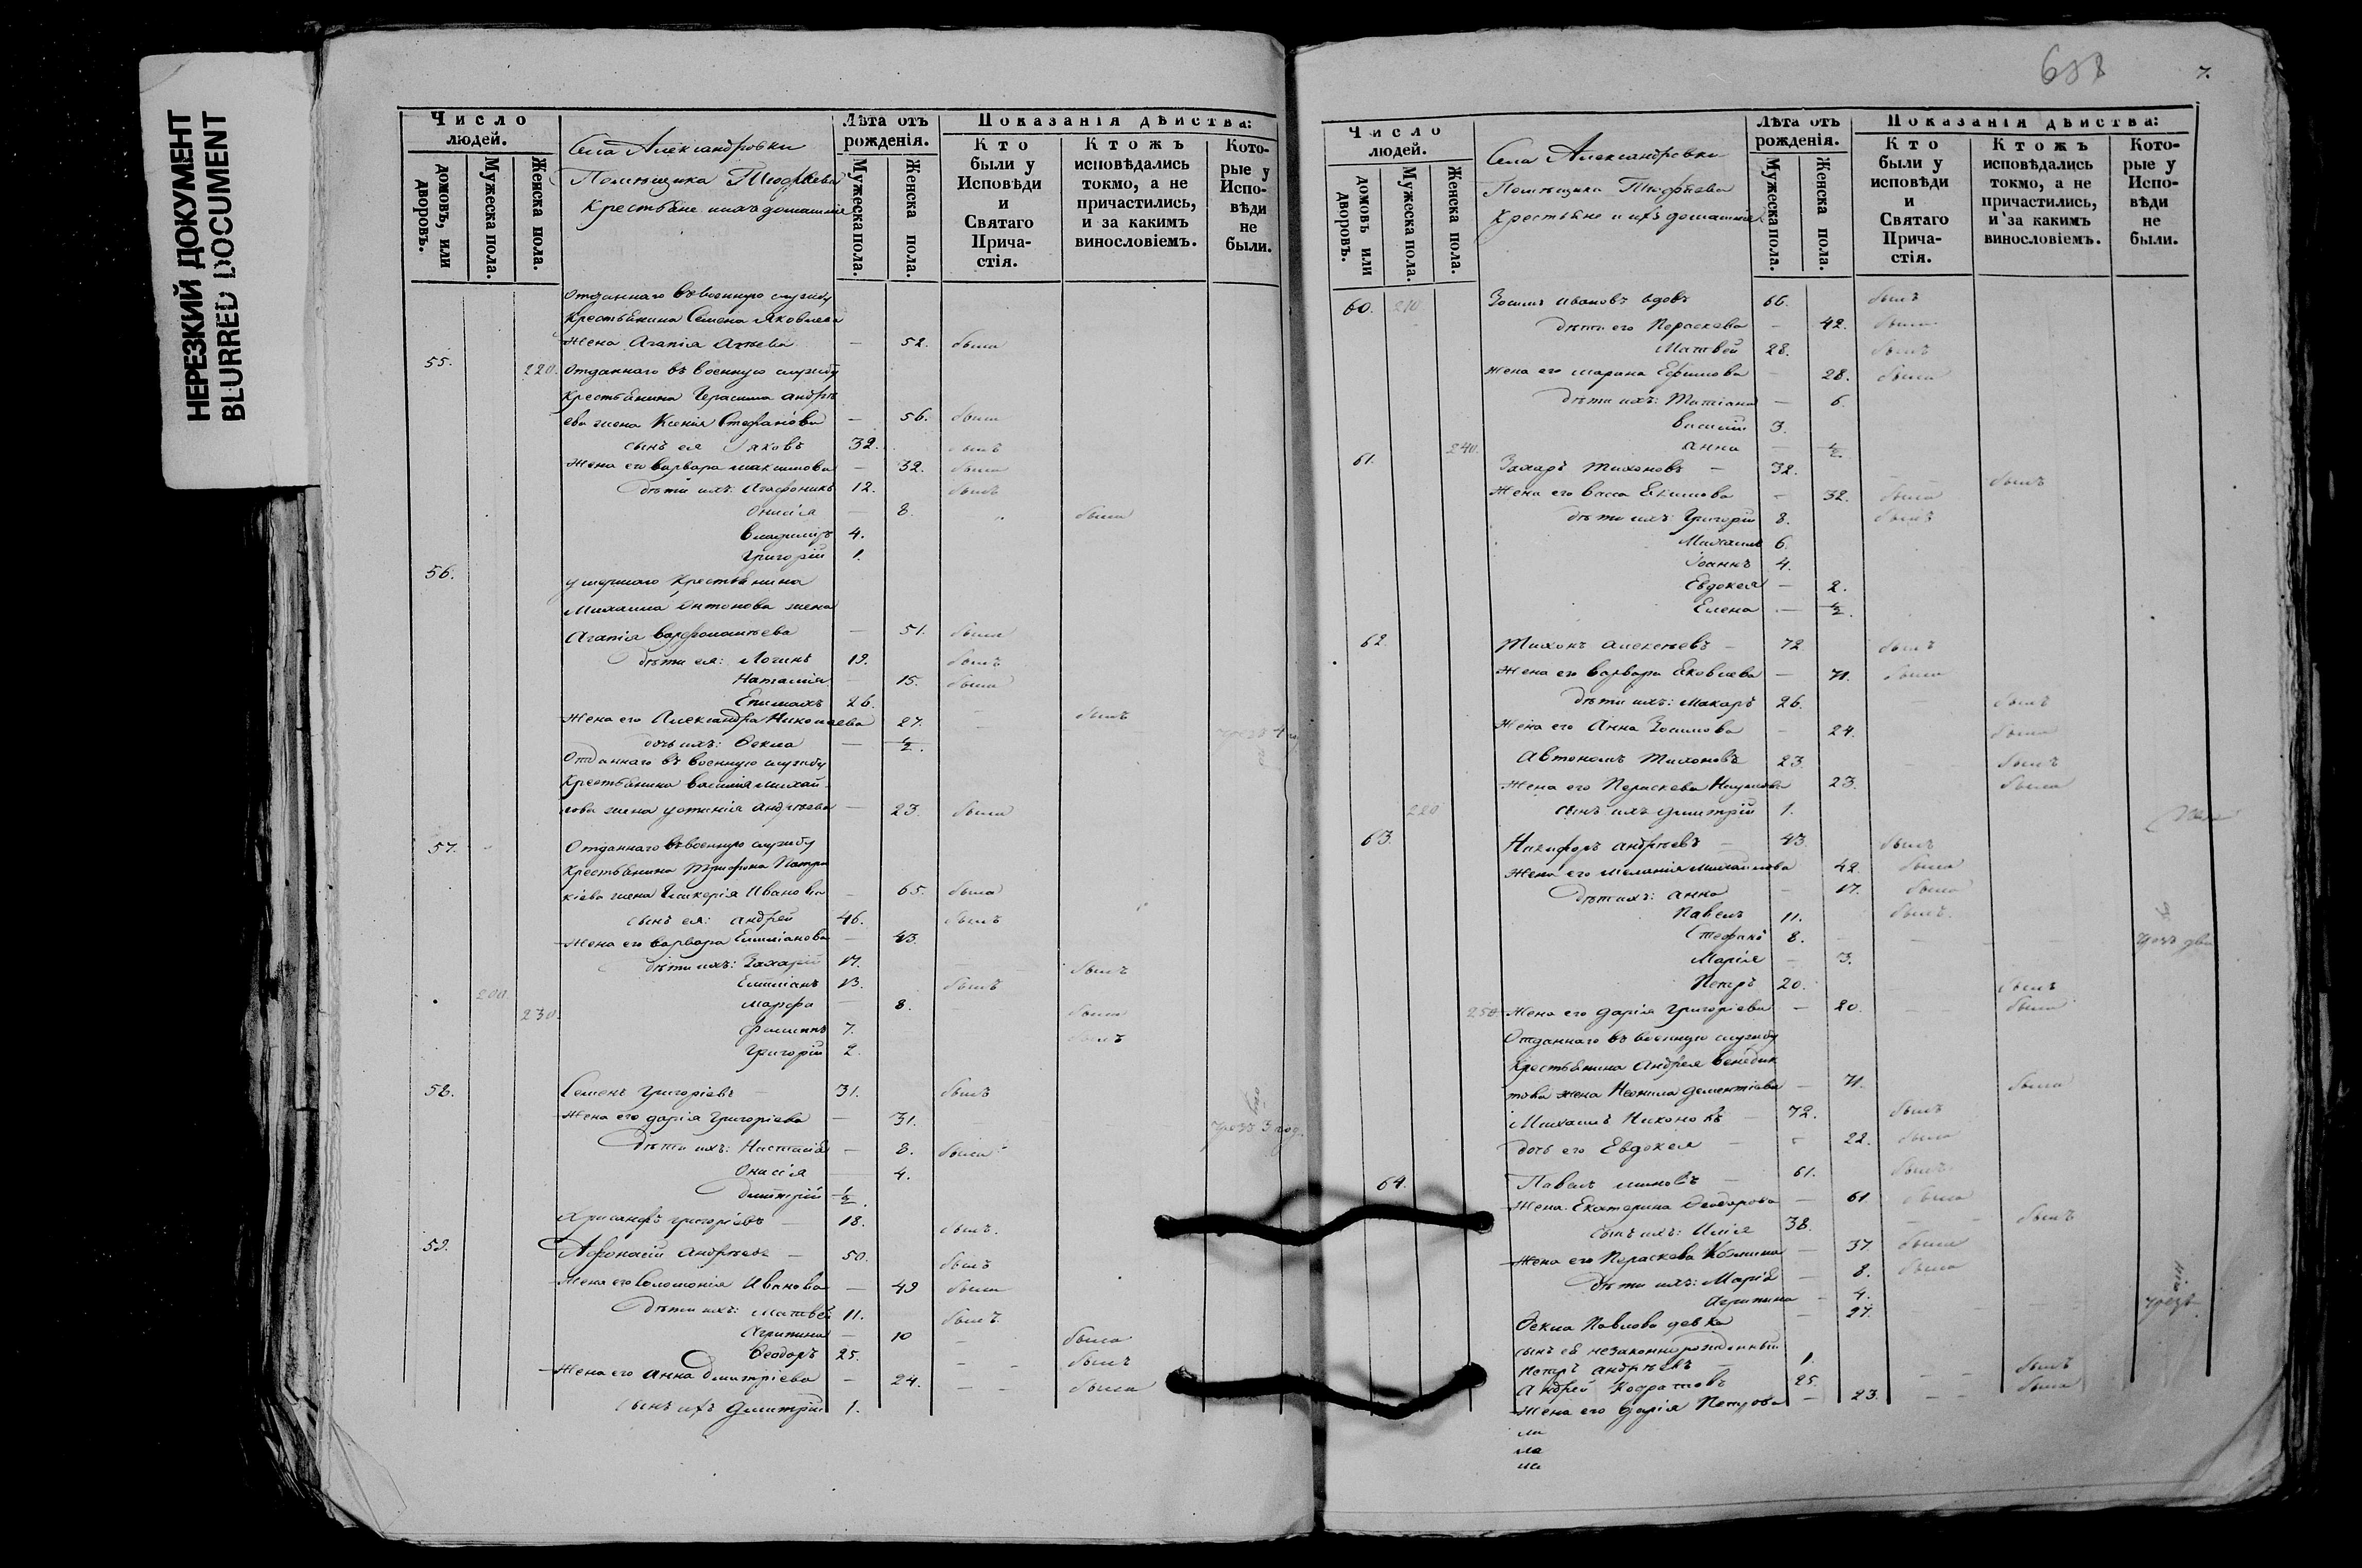 НЕРЕЗКИЙ ДОКУМЕНТ
BLURRED DOCUMENT
Число людей.
домовъ, или дворовъ.
Мужеска пола.
Женска пола.
Села Александровки
Помѣщика
Крестьяне и ихъ домашніе
Лѣта отъ рожденія.
Мужеска пола.
Женска пола.
Показанія дѣйства:
Кто были у Исповѣди и Святаго Прича-стія.
Ктожъ исповѣдались токмо, а не причастились, и за какимъ винословіемъ.
Кото-рые у Испо-вѣди не были.
Отданнаго въ военную службу
Крестьянина Семена Яковлева
Жена Агапія — 52. была
55. 220. Отданнаго въ военную службу
Крестьянина Герасима Андрѣ
ева жена Ксенія Стефанова — 56. была
сынъ ея Яковъ 32. былъ
Жена его Варвара Максимова — 32. была
дѣти ихъ: Агафоникъ 12. былъ
Онисія — 8. была
Владиміръ 4.
Григорій 1.
56. умершаго Крестьянина
Михаила Антонова жена
Агапія Варфоломѣева — 51. была
дѣти ея: Логинъ 19. былъ
Наталія — 15. была
Епимахъ 26. былъ
Жена его Александра Николаева 27. —
дочь ихъ: Фекла — ½.
Отданнаго въ военную службу
Крестьянина Василія Михай
лова жена Устинія Андрѣева — 23. была
57. Отданнаго въ военную службу
Крестьянина Трифона Патри
кіева жена Гликерія Иванова — 65. была
сынъ ея: Андрей 46. былъ
Жена его Варвара Емиліанова — 43.
дѣти ихъ: Захарій 17. былъ
200. Емиліанъ 13. былъ
230. Марфа — 8. была
Филиппъ 7. былъ
Григорій 2.
58. Семенъ Григоріевъ — 31. былъ
Жена его Дарія Григоріева — 31. чрезъ 3 год.
дѣти ихъ: Настасія — 8. была
Онисія — 4.
Дмитрій ½.
Хрисанфъ Григоріевъ — 18. былъ.
59. Афонасій Андрѣевъ — 50. былъ
Жена его Соломонія Иванова — 49 была
дѣти ихъ: Матвѣй 11. былъ
Агрипина — 10 — была
Феодоръ 25. — былъ
Жена его Анна Дмитріева — 24. — была
сынъ ихъ Димитрій 1.
688
7.
Число людей.
домовъ или дворовъ.
Мужеска пола.
Женска пола.
Села Александровки
Помѣщика
Крестьяне и ихъ домашніе
Лѣта отъ рожденія.
Мужеска пола.
Женска пола.
Показанія дѣйства:
Кто были у исповѣди и Святаго Прича-стія.
Ктожъ исповѣдались токмо, а не причастились, и за какимъ винословіемъ.
Кото-рые у Испо-вѣди не были.
60. 210 Зосимъ Ивановъ вдовъ 66. былъ
дѣти его Параскева — 42. была
Матвей 28. былъ
Жена его Марина Ефимова — 28. была
дѣти ихъ: Татіана — 6.
Василій 3.
240. Анна — ½.
61. Захаръ Тихоновъ — 32. былъ
Жена его Васса Екимова — 32. была
дѣти ихъ: Григорій 8. былъ
Михаилъ 6.
Іоаннъ 4.
Евдокея — 2.
Елена — ½.
62. Тихонъ Алексѣевъ — 72. былъ
Жена его Варвара Яковлева — 71. была
дѣти ихъ: Макаръ 26. — былъ
Жена его Анна Зосимова — 24. была
Автономъ Тихоновъ 23. былъ
Жена его Параскева Наумова 23. была
220 сынъ ихъ Димитрій 1.
63. Никифоръ Андрѣевъ — 43. былъ
Жена его Меланія Михайлова 42. была
дѣти ихъ: Анна — 17. была
Павелъ 11. былъ.
Стефанъ 8. — чрезъ два
Марія — 3.
Петръ 20. былъ
250. Жена его Дарія Григоріева — 20. была
Отданнаго въ военную службу
Крестьянина Андрея Венедик
това жена Неонила Дементіева — 71. была
Михаилъ Никоновъ — 72. былъ
дочь его Евдокея — 22. была
64. Павелъ — 61. былъ
Жена Екатерина Феодорова — 61 была
сынъ ихъ: Илія 38. былъ
Жена его Параскева Козмина — 37. была
дѣти ихъ: Марія — 8. была
Агрипина — 4.
Фекла Павлова девка — 27. чрезъ
сынъ её незаконнорожденный
Петръ Андрѣевъ — 1.
Андрей 25. былъ
Жена его Дарія Петрова — 23. — была